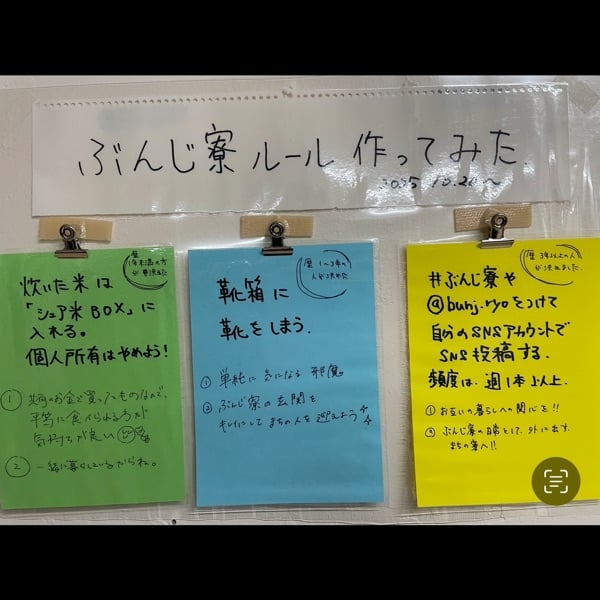 ぶんじ寮 ルール 作ってみた.
2025 10.26〜
歴
1年未満の方
が要決めた
炊いた米は
「シェア米BOX」に
入れる。
個人所有はやめよう!
① 共有のお金で買ったものなので、
平等に食べられる方が
気持ちが良い
② 一緒に暮らしているからね。
歴 1〜3年の
人が決めた
靴箱に
靴をしまう.
① 単純に気になる 邪魔。
② ぶんじ寮の玄関を
きれいにして まちの人を迎えよう
歴 3年以上の人
が決めました.
#ぶんじ寮や
@bunji.ryoをつけて
自分のSNSアカウントで
SNS投稿する.
頻度は、週1本以上.
① お互いの暮らしへの関心を!!
② ぶんじ寮の日常として、外に出す.
まちの寮へ!!